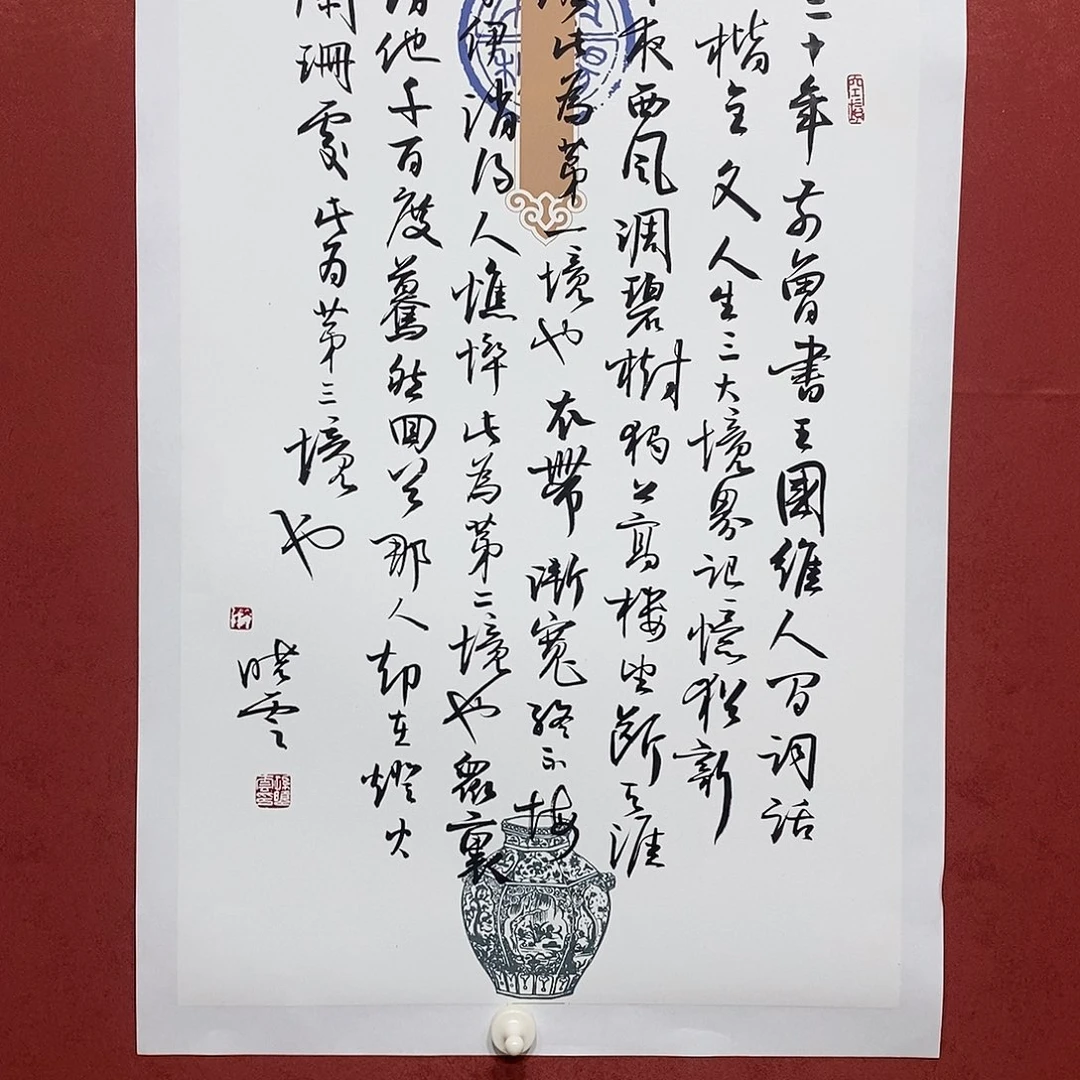 二十年前曾書王國維人间词话
楷全文人生三大境界記憶猶新
夜西風凋碧樹獨上高樓望斷天涯
路此為第一境也衣帶漸寬終不悔
伊消得人憔悴此為第二境也眾裏
他千百度驀然回首那人却在燈火
闌珊處此为第三境也
晓雲